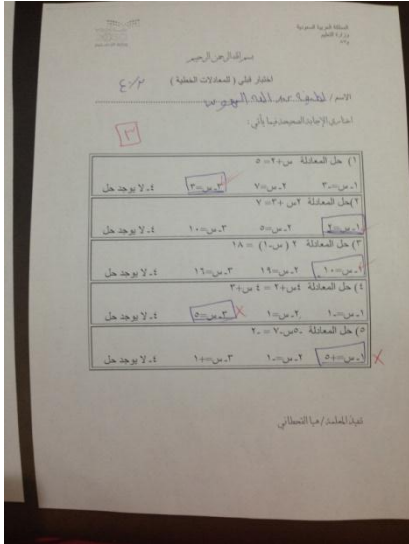 المملكة العربية السعودية
وزارة التعليم
بسم الله الرحمن الرحيم
اختبار قبلي ( للمعادلات الخطية )
الاسم/ لطيفة عبد الله
اختاري الإجابة الصحيحة فيما يأتي :
٣
١) حل المعادلة س+٢= ٥
١ـ س=-٣ ٢ـ س=٧ ٣ـ س=٣ ٤ـ لا يوجد حل
٢) حل المعادلة ٢س +٣= ٧
١ـ س=٢ ٢ـ س=٥ ٣ـ س=١٠ ٤ـ لا يوجد حل
٣) حل المعادلة ٢ ( س-١) = ١٨
١ـ س=١٠ ٢ـ س=١٩ ٣ـ س=١٦ ٤ـ لا يوجد حل
٤) حل المعادلة ٤س+٢ = ٤ س+٣
١ـ س=-١ ٢ـ س=١ ٣ـ س=٥ ٤ـ لا يوجد حل
٥) حل المعادلة -٥س-٧ = -٢
١ـ س=+٥ ٢ـ س=-١ ٣ـ س=+١ ٤ـ لا يوجد حل
تنفيذ المعلمة / هيا القحطاني